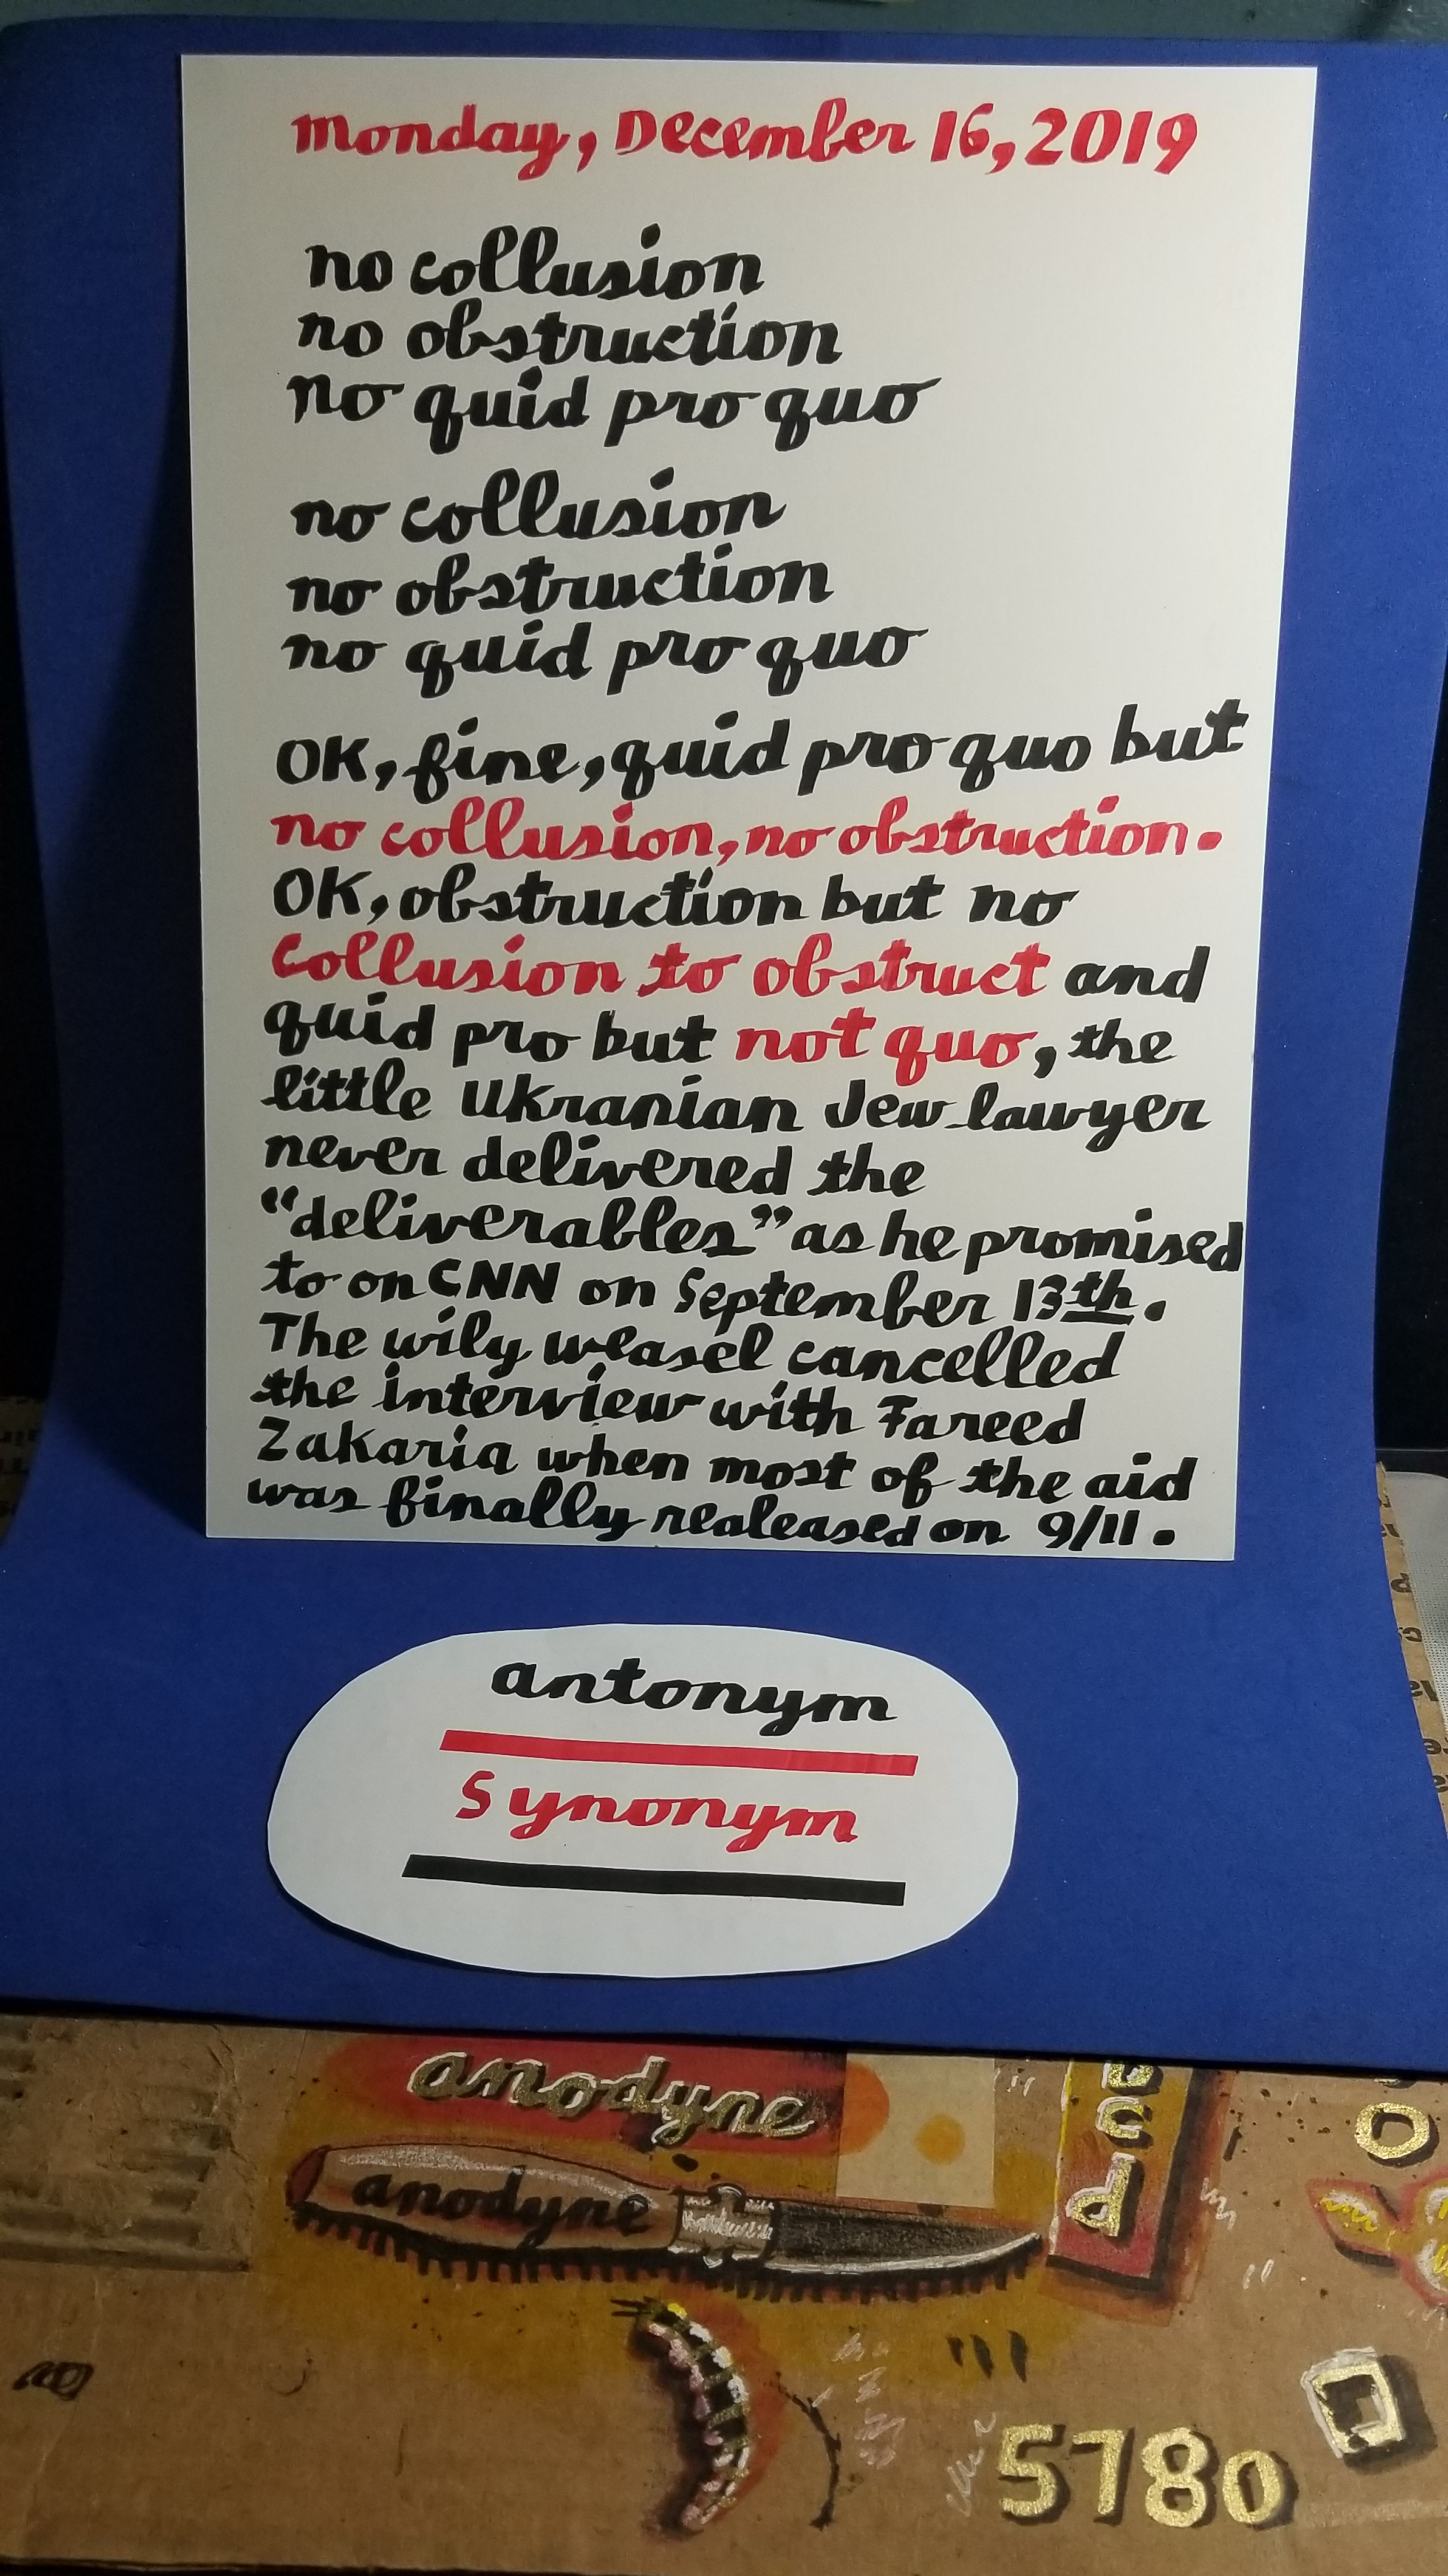 monday, December 16, 2019
no collusion
no obstruction
no quid pro quo
no collusion
no obstruction
no quid pro quo
OK, fine, quid pro quo but
no collusion, no obstruction.
OK, obstruction but no
Collusion to obstruct and
quid pro but not quo, the
little Ukranian Jew lawyer
never delivered the
"deliverables" as he promised
to on CNN on September 13th.
The wily weasel cancelled
the interview with Fareed
Zakaria when most of the aid
was finally realeased on 9/11.
antonym
Synonym
anodyne
anodyne
C
d
O
5780